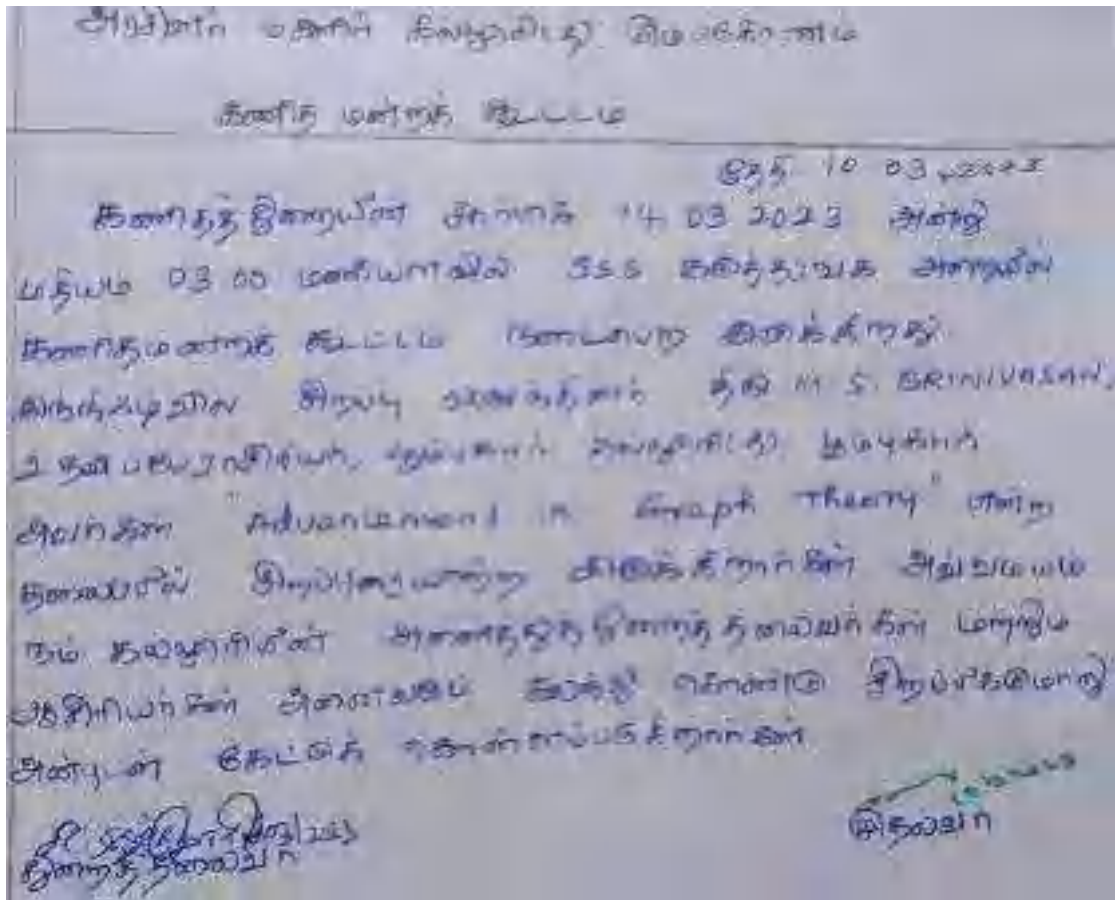 அரசினர் மகளிர் கல்லூரி, கும்பகோணம்
கணித மன்றக் கூட்டம்
தேதி 10 03 2023
கணிதத் துறையின் சார்பாக 14 03 2023 அன்று
மதியம் 03 00 மணியளவில் SSS கலந்தரங்க அறையில்
கணிதமன்றக் கூட்டம் நடைபெற இருக்கிறது.
சிறப்பு திரு M. S. SRINIVASAN,
உதவிப்பேராசிரியர், கல்லூரி,
அவர்கள் "Advancement in Graph Theory" என்ற
தலைப்பில் சிறப்புரையாற்ற இருக்கிறார்கள் அவ்வமயம்
நம் கல்லூரியின் அனைத்துத் துறைத் தலைவர்கள் மற்றும்
ஆசிரியர்கள் அனைவரும் கலந்து கொண்டு சிறப்பிக்குமாறு
அன்புடன் கேட்டுக் கொள்ளப்படுகிறார்கள்
துறைத்தலைவர்
முதல்வர்